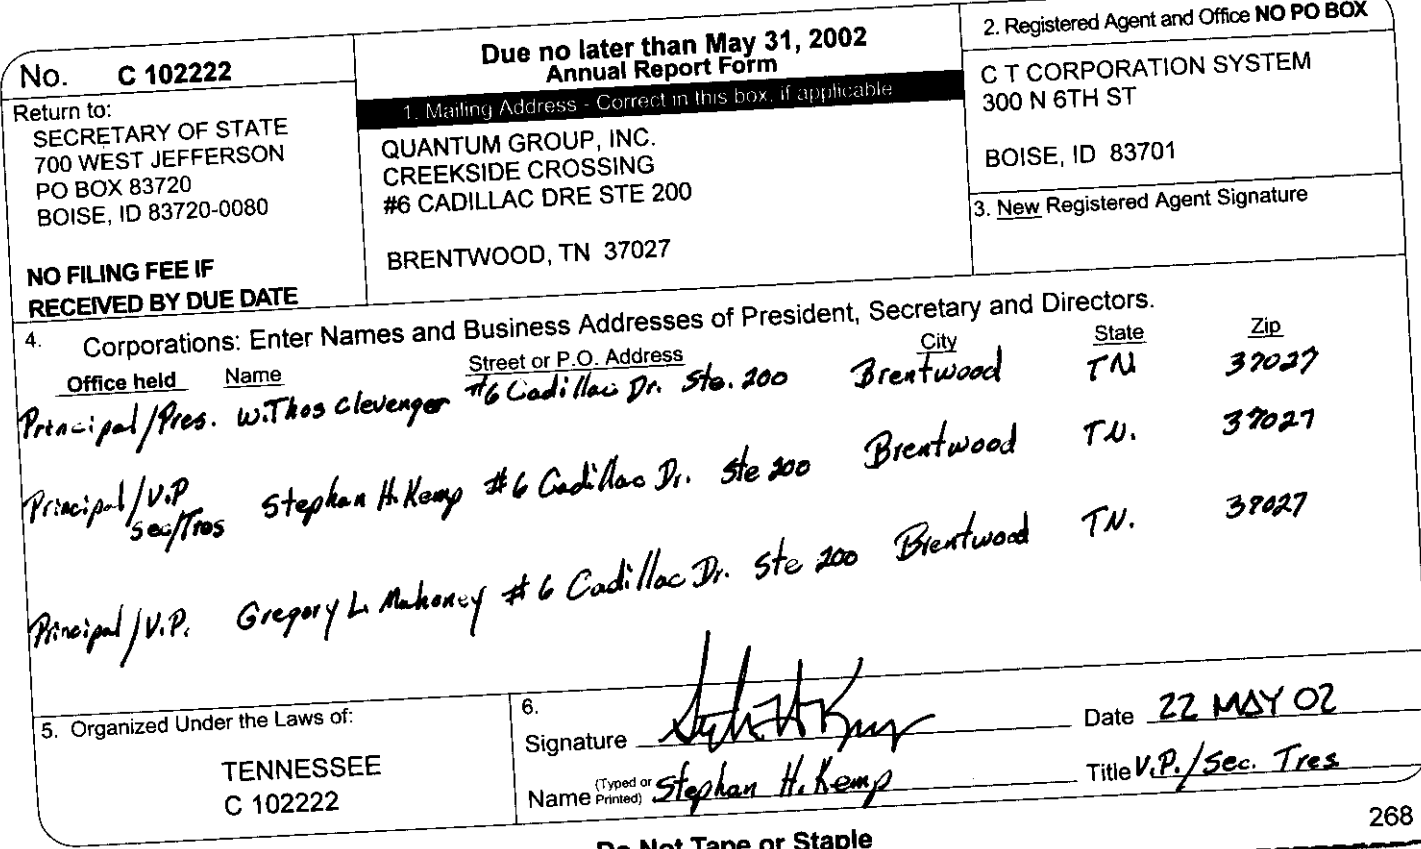 No. C 102222
Return to:
SECRETARY OF STATE
700 WEST JEFFERSON
PO BOX 83720
BOISE, ID 83720-0080
NO FILING FEE IF
RECEIVED BY DUE DATE
Due no later than May 31, 2002
Annual Report Form
1. Mailing Address - Correct in this box, if applicable
QUANTUM GROUP, INC.
CREEKSIDE CROSSING
#6 CADILLAC DRE STE 200
BRENTWOOD, TN 37027
2. Registered Agent and Office NO PO BOX
C T CORPORATION SYSTEM
300 N 6TH ST
BOISE, ID 83701
3. New Registered Agent Signature
4. Corporations: Enter Names and Business Addresses of President, Secretary and Directors.
Office held Name Street or P.O. Address City State Zip
Principal/Pres. W.Thos Clevenger #6 Cadillac Dr. Ste. 200 Brentwood TN 37027
Principal/V.P Stephan H. Kemp #6 Cadillac Dr. Ste 200 Brentwood TN. 37027
Sec/Tres
Principal/V.P. Gregory L. Mahoney #6 Cadillac Dr. Ste 200 Brentwood TN. 37027
5. Organized Under the Laws of:
TENNESSEE
C 102222
6.
Signature Date 22 MAY 02
Name (Typed or Printed) Stephan H. Kemp Title V.P./Sec. Tres
Do Not Tape or Staple
268